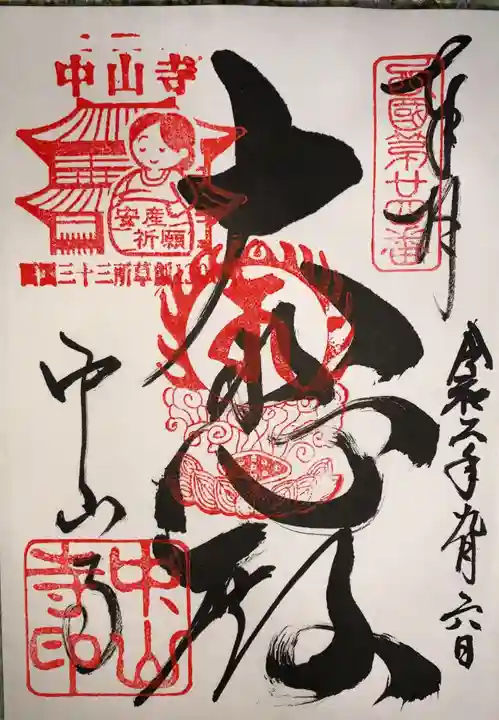 奉拝
西國第廿四番
大悲殿
令和二年九月六日
中山寺
安産
祈願
三十三所草創
中山寺
中山寺印